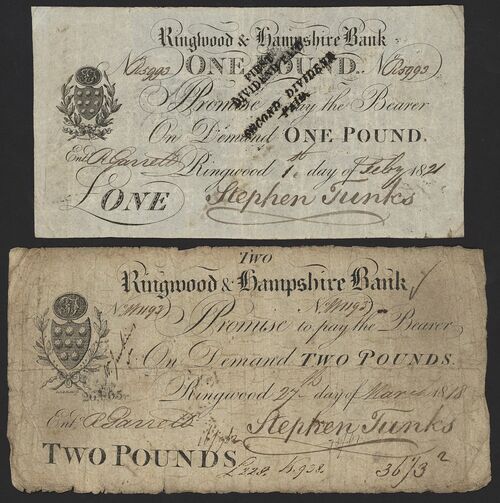 Ringwood & Hampshire Bank
No R5993 ONE POUND. No R5993
FIRST DIVIDEND PAID
SECOND DIVIDEND PAID
I Promise to pay the Bearer
On Demand ONE POUND.
Entd. R Garrett Ringwood 1st day of Feby 1821
£ONE Stephen Tunks
TWO
Ringwood & Hampshire Bank
No W1193 No W1193
I Promise to pay the Bearer
On Demand TWO POUNDS.
Ringwood 27th day of March 1818
Entd. R Garrett Stephen Tunks
TWO POUNDS